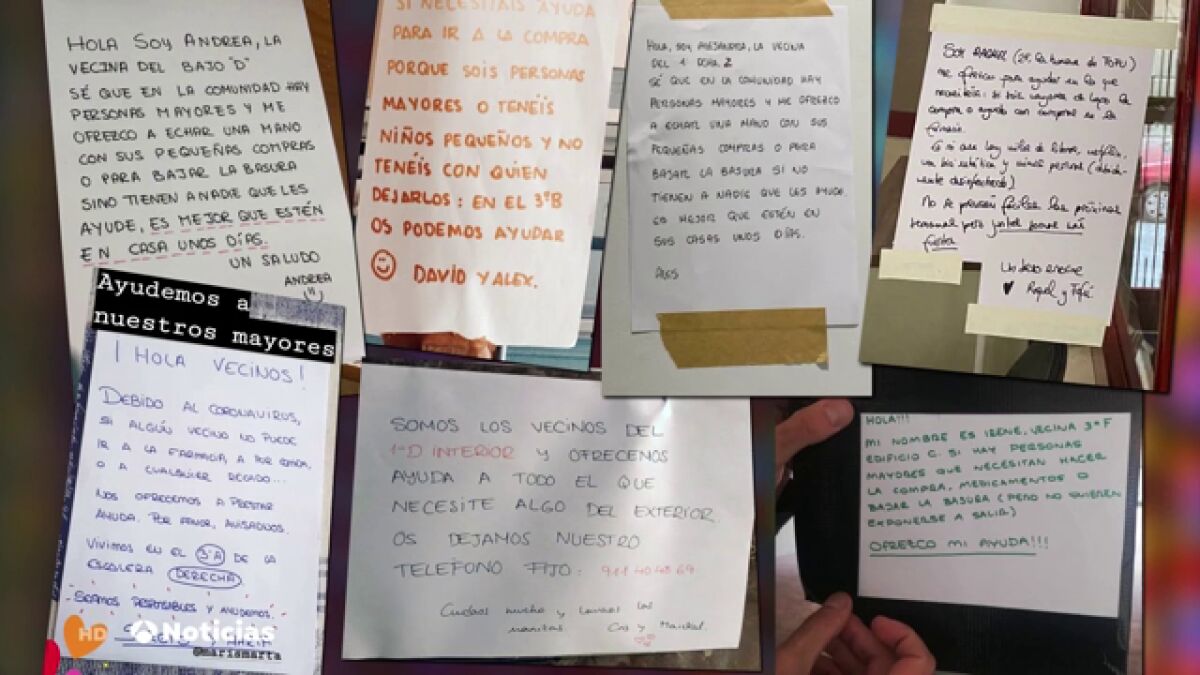 HOLA SOY ANDREA, LA
VECINA DEL BAJO "D"
SÉ QUE EN LA COMUNIDAD HAY
PERSONAS MAYORES Y ME
OFREZCO A ECHAR UNA MANO
CON SUS PEQUEÑAS COMPRAS
O PARA BAJAR LA BASURA
SINO TIENEN A NADIE QUE LES
AYUDE, ES MEJOR QUE ESTÉN
EN CASA UNOS DÍAS.
UN SALUDO
ANDREA
SI NECESITÁIS AYUDA
PARA IR A LA COMPRA
PORQUE SOIS PERSONAS
MAYORES O TENÉIS
NIÑOS PEQUEÑOS Y NO
TENÉIS CON QUIEN
DEJARLOS: EN EL 3ºB
OS PODEMOS AYUDAR
DAVID Y ALEX.
HOLA, SOY ALEJANDRA, LA VECINA
DEL 1 DCHA. 2
SÉ QUE EN LA COMUNIDAD HAY
PERSONAS MAYORES Y ME OFREZCO
A ECHAR UNA MANO CON SUS
PEQUEÑAS COMPRAS O PARA
BAJAR LA BASURA SI NO
TIENEN A NADIE QUE LES AYUDE.
ES MEJOR QUE ESTÉN EN
SUS CASAS UNOS DÍAS.
SOY RAQUEL (la humana de TOFU)
me ofrezco para ayudar en lo que
compra o ayuda con compras en la
farmacia.
No se
Un beso enorme
♥ Raquel y Tofu
Ayudemos a
nuestros mayores
¡HOLA VECINOS!
DEBIDO AL CORONAVIRUS,
SI ALGÚN VECINO NO PUEDE
IR A LA FARMACIA, A POR COMIDA,
O A CUALQUIER RECADO...
NOS OFRECEMOS A PRESTAR
AYUDA. POR FAVOR, AVISADNOS.
VIVIMOS EN EL 3ºA DE LA
ESCALERA DERECHA.
SEAMOS RESPONSABLES Y AYUDEMOS.
HD Noticias
@marismarta
SOMOS LOS VECINOS DEL
1ºD INTERIOR Y OFRECEMOS
AYUDA A TODO EL QUE
NECESITE ALGO DEL EXTERIOR.
OS DEJAMOS NUESTRO
TELEFONO FIJO: 911 40 40 69
Cuidaos mucho y lavaos las
manitas. Cris y
HOLA!!!
MI NOMBRE ES IRENE, VECINA 3º F
EDIFICIO C. SI HAY PERSONAS
MAYORES QUE NECESITAN HACER
LA COMPRA, MEDICAMENTOS O
BAJAR LA BASURA (PERO NO QUIEREN
EXPONERSE A SALIR)
OFREZCO MI AYUDA!!!